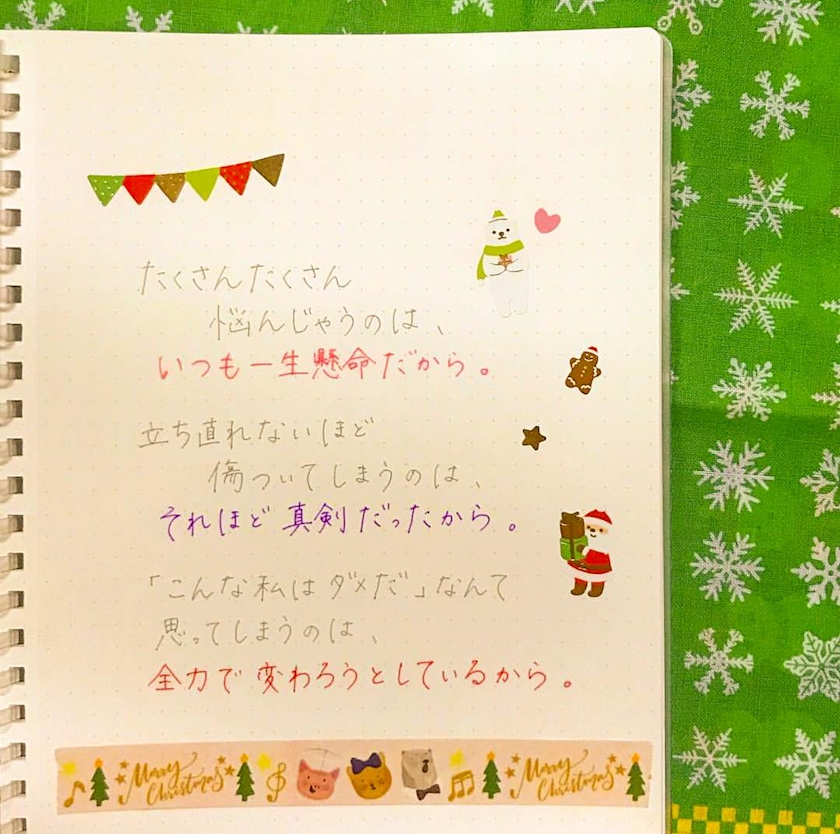 たくさんたくさん
悩んじゃうのは、
いつも一生懸命だから。
立ち直れないほど
傷ついてしまうのは、
それほど真剣だったから。
「こんな私はダメだ」なんて
思ってしまうのは、
全力で変わろうとしているから。
Merry Christmas Merry Christmas